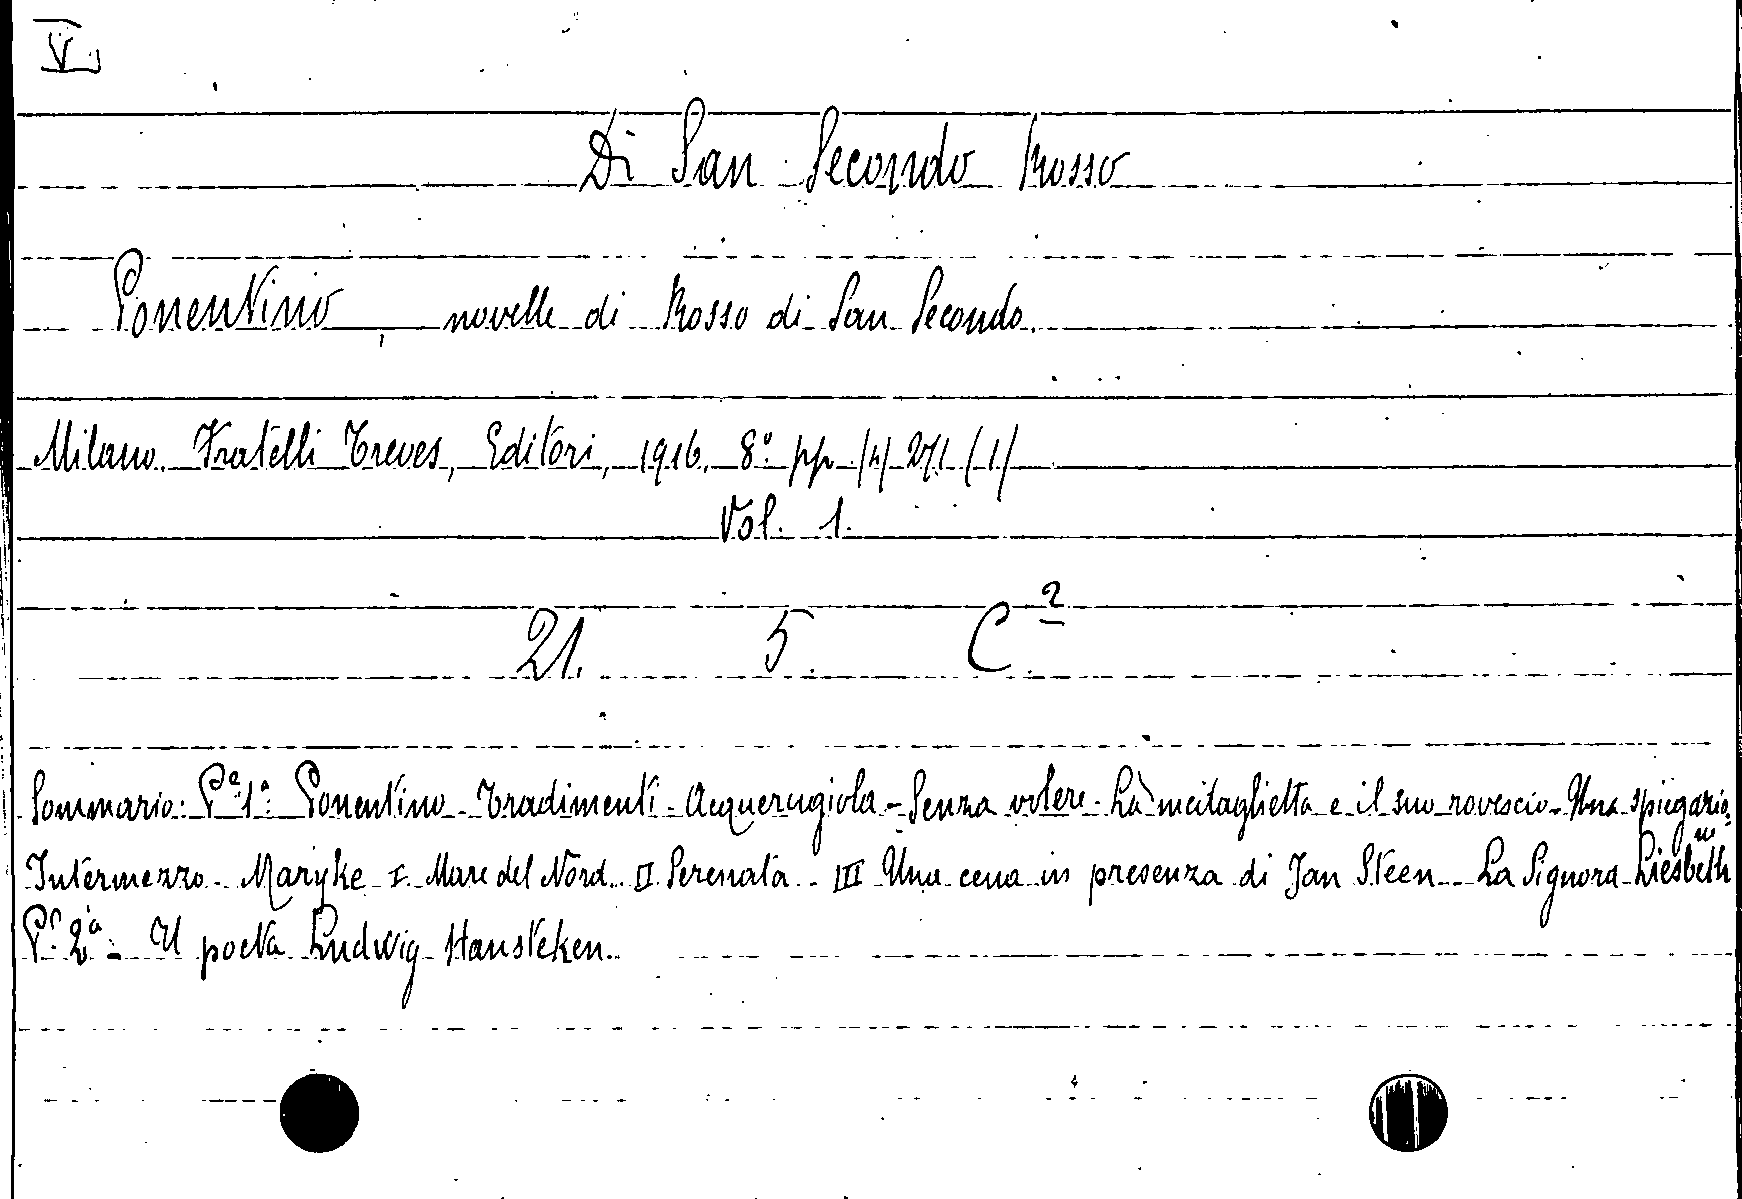 V
Di San Secondo Rosso
Ponentino, novelle di Rosso di San Secondo.
Milano. Fratelli Treves, Editori, 1916. 8° pp. (4) 271 (1)
Vol. 1.
21. 5. C²
Sommario: Pe 1a: Ponentino - Tradimenti - Acquerugiola - Senza volere - La medaglietta e il suo rovescio - Una spiegazio=
ne
Intermezzo - Maryke I. Mare del Nord. II Serenata - III Una cena in presenza di Jan Steen - La Signora Liesbeth
Pe 2a = Il poeta Ludwig Hansteken.